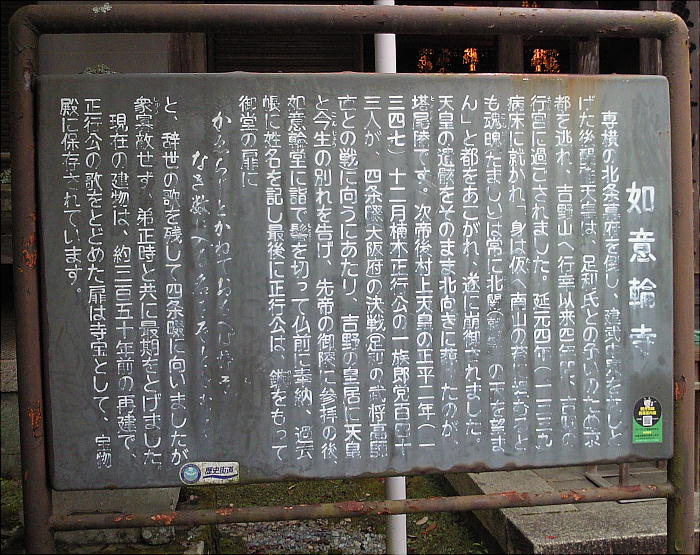 如意輪寺
専横の北条幕府を倒し、建武中興を
げた後醍醐天皇は、足利氏との争いのため京
都を逃れ、吉野山へ行幸以来四年間、吉野の
行宮に過ごされました。延元四年(一三三九
病床に就かれ「身は仮へ南山の苔に埋むると
も魂魄(たましい)は常に北闕の天を望ま
ん」と都をあこがれ、遂に崩御されました。
天皇の遺骸をそのまま北向きに葬ったのが、
塔尾陵です。次帝後村上天皇の正平二年(一
三四七)十二月楠木正行公の一族郎党百四十
三人が、四条畷(大阪府)の決戦(足利の武将高師
直との戦)に向うにあたり、吉野の皇居に天皇
と今生の別れを告げ、先帝の御陵に参拝の後、
如意輪堂に詣で髻を切って仏前に奉納、過去
帳に姓名を記し最後に正行公は、鏃をもって
御堂の扉に
かへらじとかねておもへば梓弓
なき数に入る名をぞとどむる
と、辞世の歌を残して四条畷に向いましたが
衆寡敵せず、弟正時と共に最期をとげました。
現在の建物は、約三百五十年前の再建で、
正行公の歌をとどめた扉は寺宝として、宝物
殿に保存されています。
歴史街道